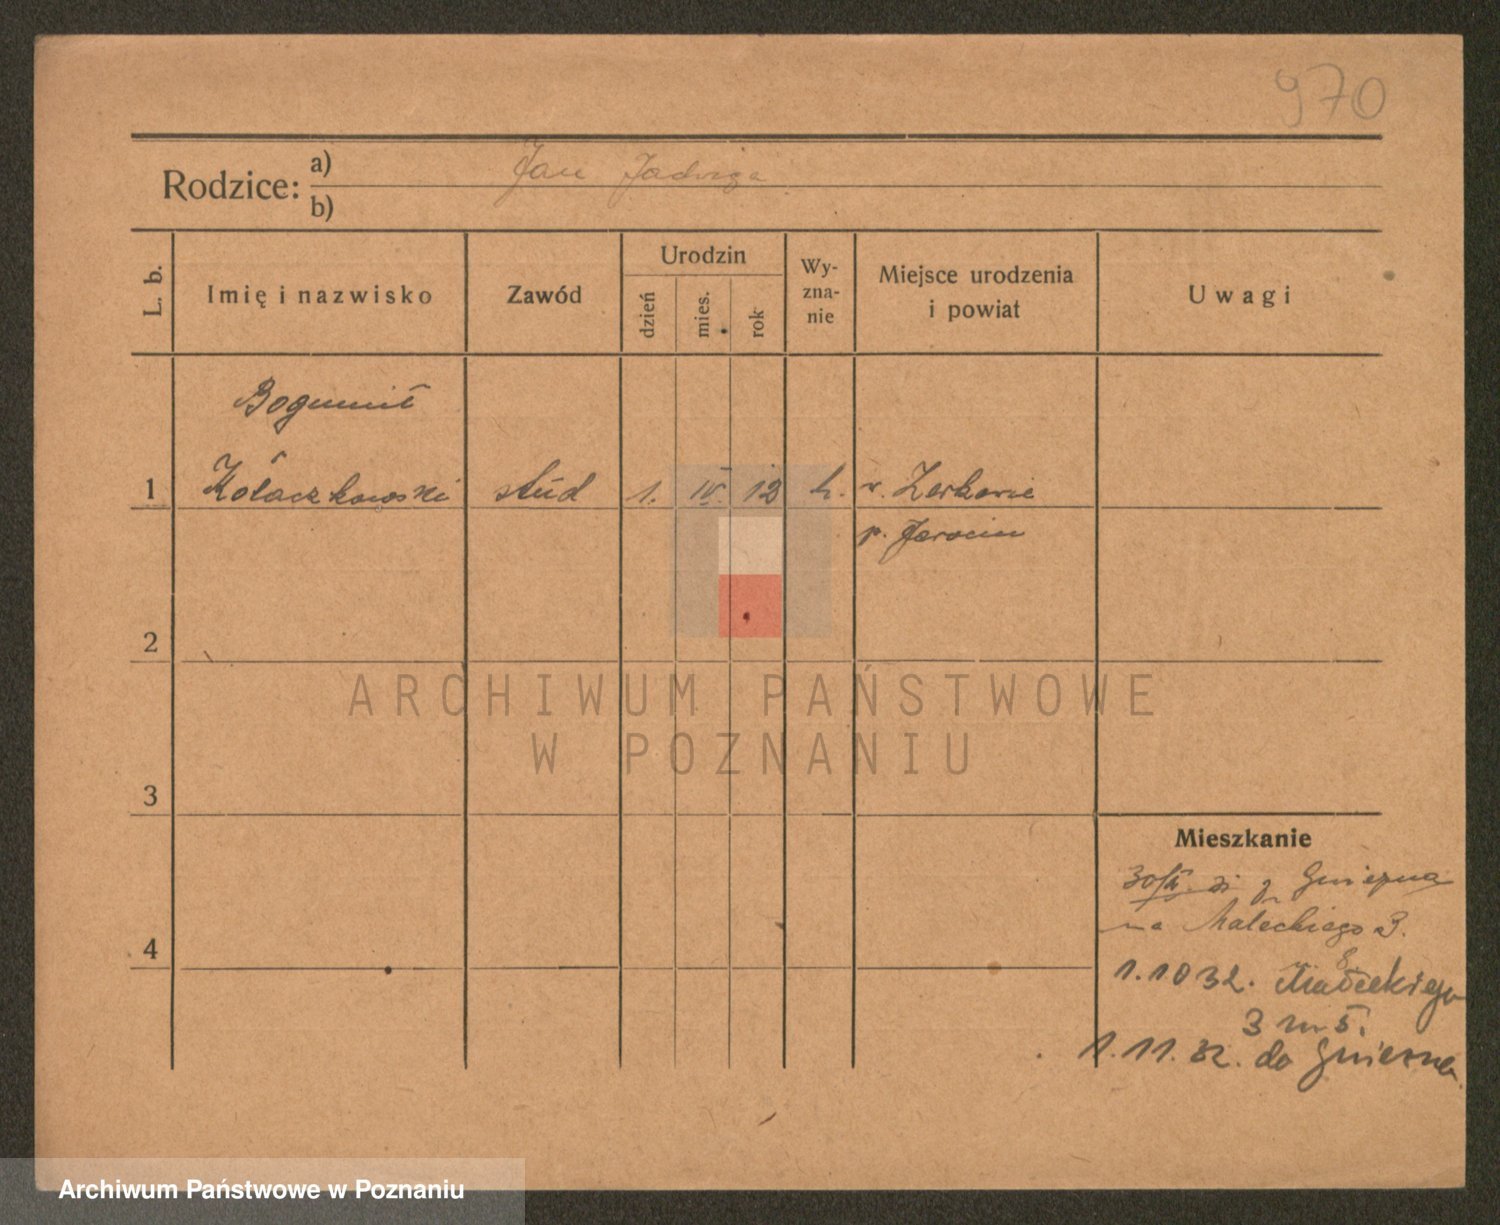 970
Rodzice: a) Jan Jadwiga
b)
L. b.
Imię i nazwisko
Zawód
Urodzin
dzień
mies.
rok
Wy-
zna-
nie
Miejsce urodzenia
i powiat
Uwagi
Bogumił
1 Kołaczkowski stud 1. IV. 12 k. w. Zerkowie
p. Jarocin
2
ARCHIWUM PAŃSTWOWE
W POZNANIU
3
Mieszkanie
z Gniezna
4
na Małeckiego 3.
1.10 32. Małeckiego
3 m 5.
1.11.32. do Gniezna
Archiwum Państwowe w Poznaniu